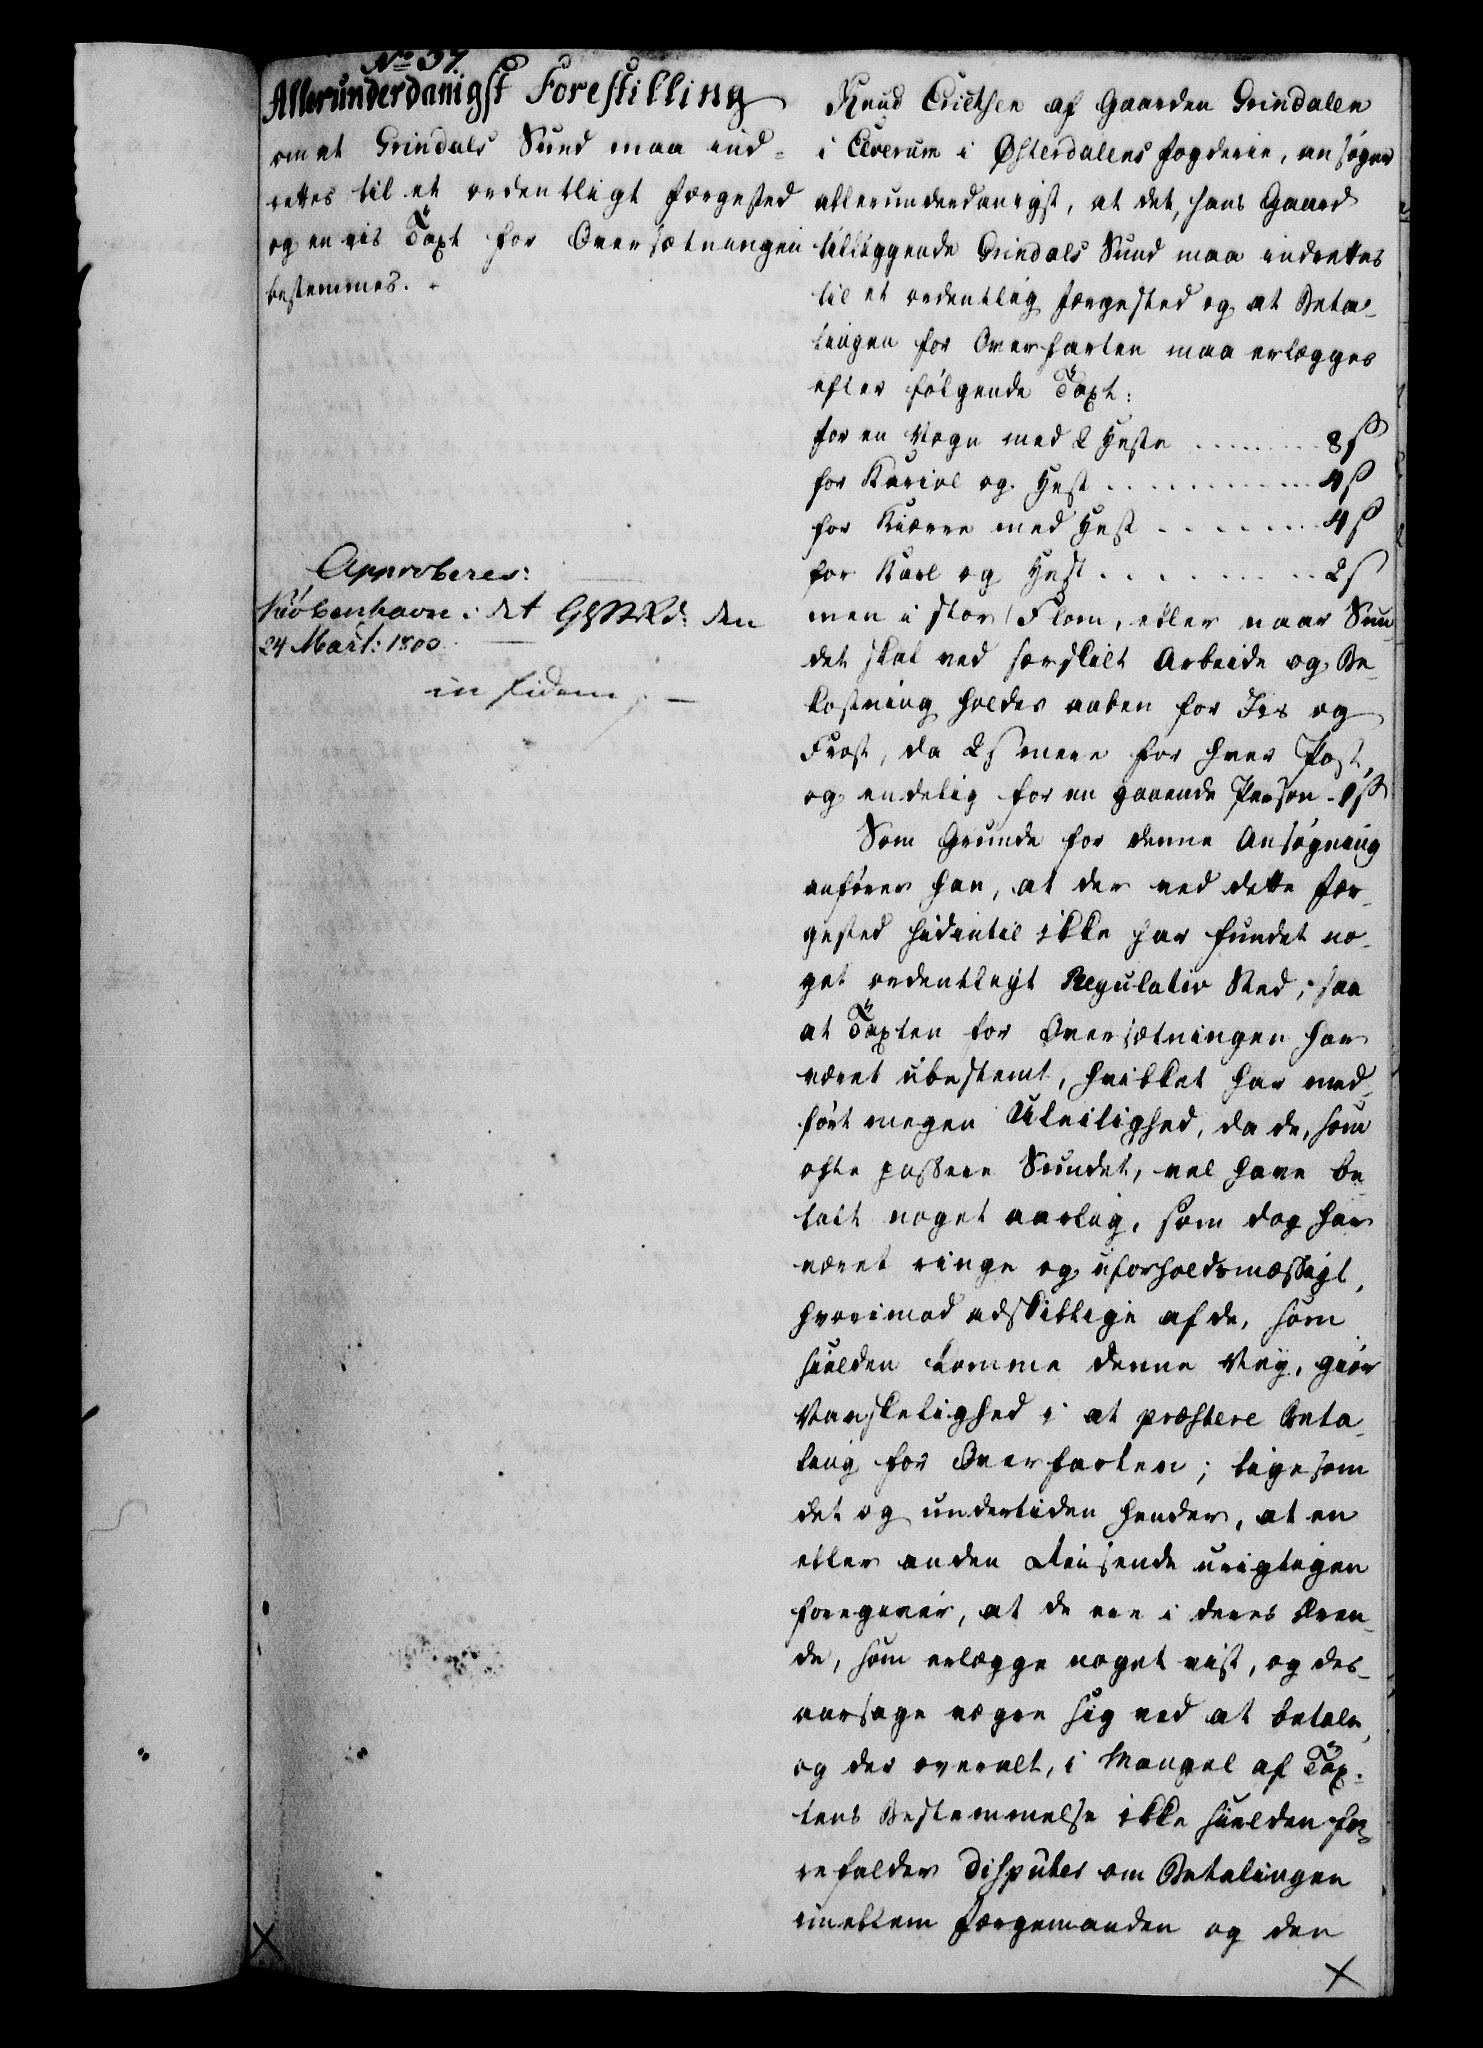 No 37.
Allerunderdanigst Forestilling
om at Grindals Sund maa ind=
rettes til et ordentligt Færgested
og en vis Taxt for Oversætningen
bestemmes.
Approberes:
Kiöbenhavn i det den
24 Mart: 1800.
in fidem
Knud Erichsen af Gaarden Grindalen
i Elverum i Østerdalens Fogderie, ansøger
allerunderdanigst, at det, hans Gaard
tilliggende Grindals Sund maa indrettes
til et ordentlig Færgested og at Beta-
lingen for Overfarten maa erlægges
efter følgende Taxt:
for en Vogn med 2 Heste ........ 8 ß
for Kariol og Hest .......... 4 ß
for Kiærre med Hest ....... 4 ß
for Karl og Hest .......... 2 ß
men i stor Flom, eller naar Sun-
det skal ved særskilt Arbeide og Be-
kostning holdes aaben for Iis og
Frost, da 2 ß mere for hver Post,
og endelig for en gaaende Person - 1 ß
Som Grunde for denne Ansøgning
anfører han, at der ved dette Fær-
gested hidintil ikke har fundet no-
get ordentligt Regulativ Sted; saa
at Taxten for Oversætningen har
været ubestemt, hvilket har med-
ført megen Uleilighed, da de, som
ofte passere Sundet, vel have be-
talt noget aarlig, som dog har
været ringe og uforholdsmæssigt,
hvorimod adskillige af de, som
sielden komme denne Vej, giør
Vanskelighed i at præstere Beta-
ling for Overfarten; ligesom
det og undertiden hender, at en
eller anden Reisende urigtigen
foregiver, at de ere i deres Æren-
de, som erlægge noget vist, og des-
aarsage vægre sig ved at betale,
og der overalt, i Mangel af Tax-
tens Bestemmelse ikke sielden fo-
refalder Disputer om Betalingen
imellem Færgemanden og den